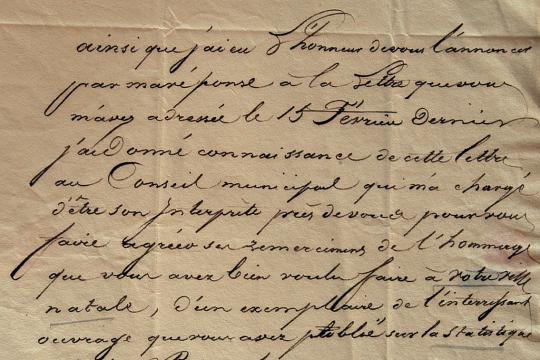 ainsi que j'ai eu l'honneur de vous l'annoncer
par ma réponse à la lettre que vous
m'avez adressée le 15 Février Dernier
j'ai donné connaissance de cette lettre
au Conseil municipal qui m'a chargé
d'être son Interprête près de vous pour vous
faire agréer ses remerciments de l'hommage
que vous avez bien voulu faire à votre ville
natale, d'un exemplaire de l'interressant
ouvrage que vous avez publié sur la statistique